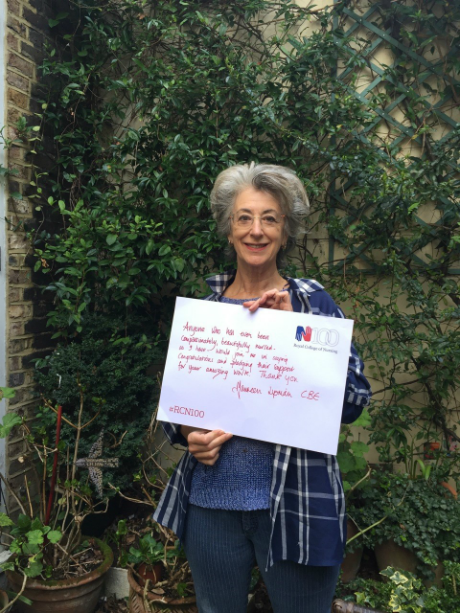 N100
Royal College of Nursing
Anyone who has ever been
compassionately, beautifully nursed -
as I have - would join me in saying
congratulations and pledging their support
for your amazing work! Thank you
Maureen Lipman CBE
#RCN100